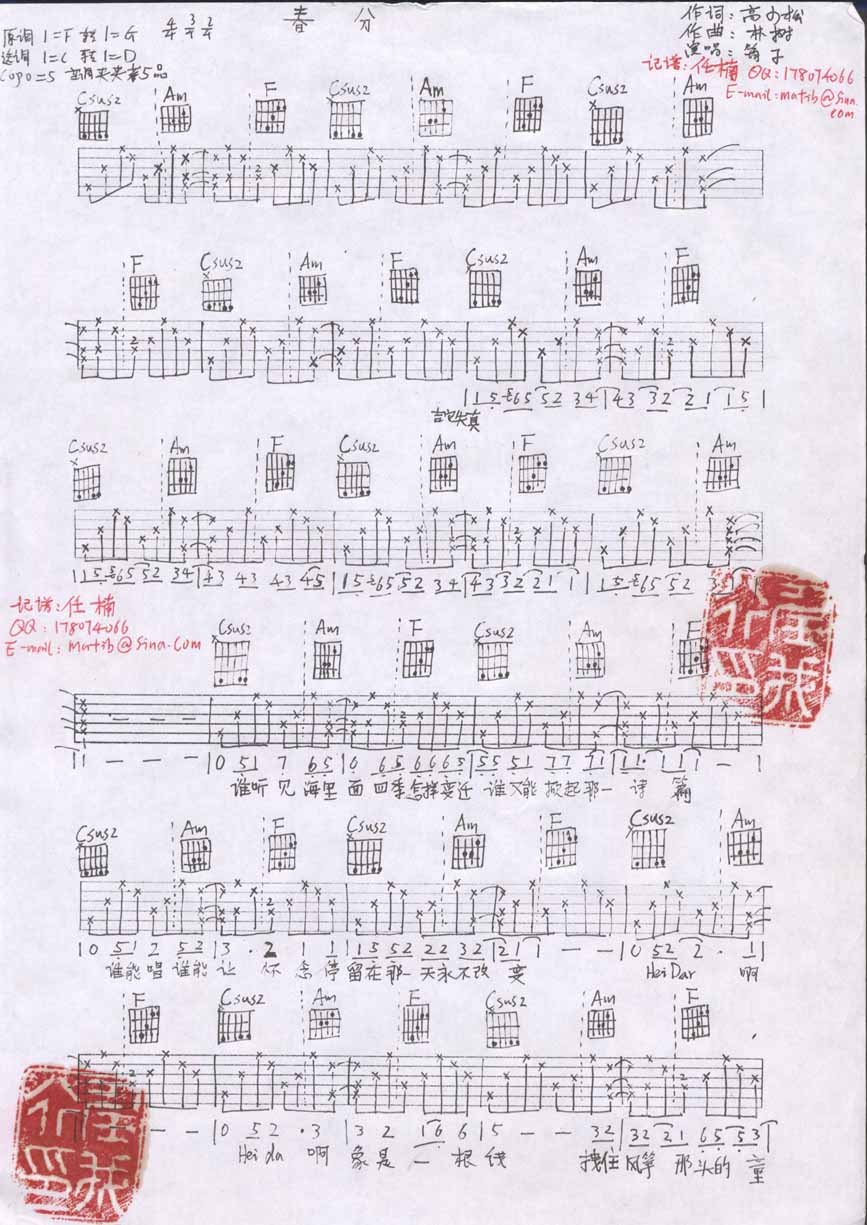 春 分
原调 1=F 转 1=G 4/4 3/4 2/4
选调 1=C 转 1=D
Capo=5 变调夹夹第5品
作词：高小松
作曲：朴树
演唱：筠子
记谱：任楠 QQ：178074066
E-mail：matib@sina.com
Csus2 Am F Csus2 Am F Csus2 Am
F Csus2 Am F Csus2 Am F
|15·6552 34|43 32 21 15|
Csus2 Am F Csus2 Am F Csus2 Am
记谱：任楠
QQ：178074066
E-mail：matib@sina.com
Csus2 Am F Csus2 Am F
1 - - - |0 51 7 65|0 65 6665|55 51 77 71|11· 11 1 -|
谁听见海里面四季怎样变迁 谁又能掀起那一诗篇
Csus2 Am F Csus2 Am F Csus2 Am
|0 51 2 52|3· 2 1 1|15 52 22 32|21 1 - -|0 52 2· 1|
谁能唱谁能让怀念停留在那一天永不改变 Hei Dar 啊
F Csus2 Am F Csus2 Am F
1 - - - |0 52 ·3|3 2 16 6|5 - - 32|32 21 65 53|
Hei da 啊 象是一根线 拽住风筝那头的童